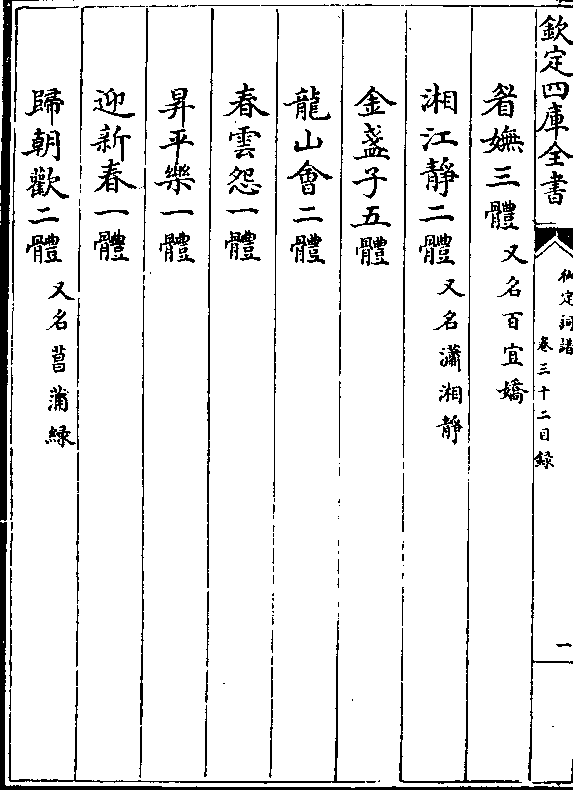 欽定四庫全書
御定詞譜
卷三十二目録
一
眉嫵三體又名百宜嬌
湘江靜二體又名瀟湘靜
金盞子五體
龍山會二體
春雲怨一體
昇平樂一體
迎新春一體
歸朝歡二體又名菖蒲緑